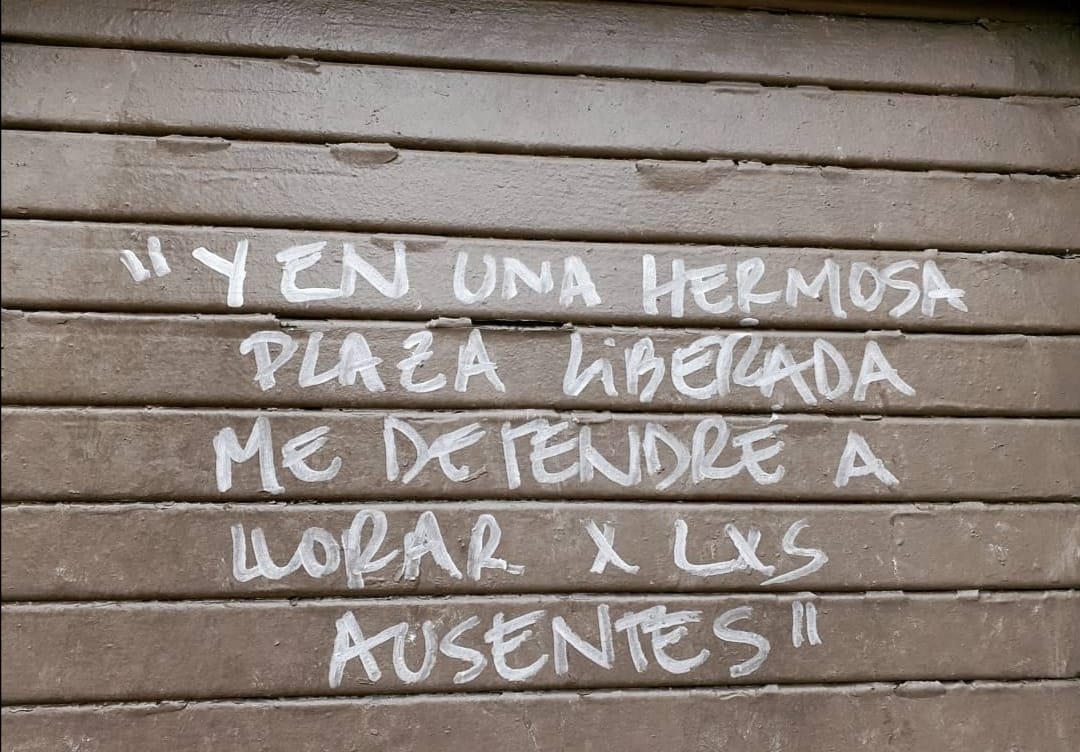 "Y EN UNA HERMOSA
PLAZA LiBERADA
ME DETENDRÉ A
LLORAR X LXS
AUSENTES"